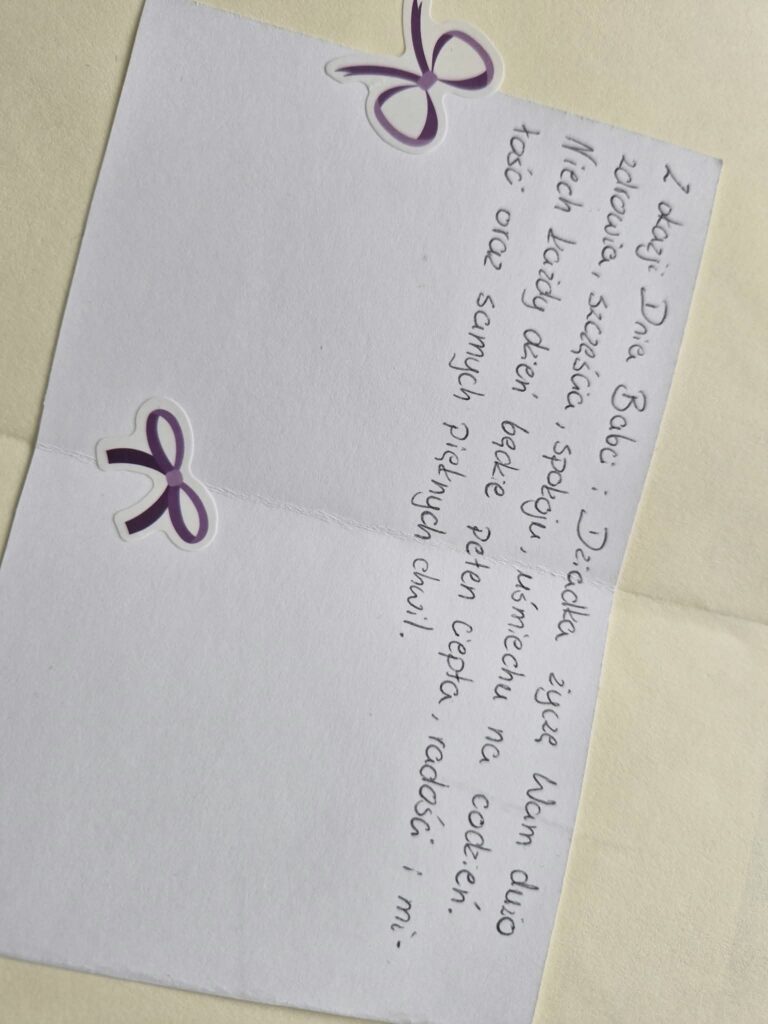 Z okazji Dnia Babci i Dziadka życzę Wam dużo
zdrowia, szczęścia, spokoju, uśmiechu na codzień.
Niech każdy dzień będzie pełen ciepła, radości i mi-
łość oraz samych pięknych chwil.